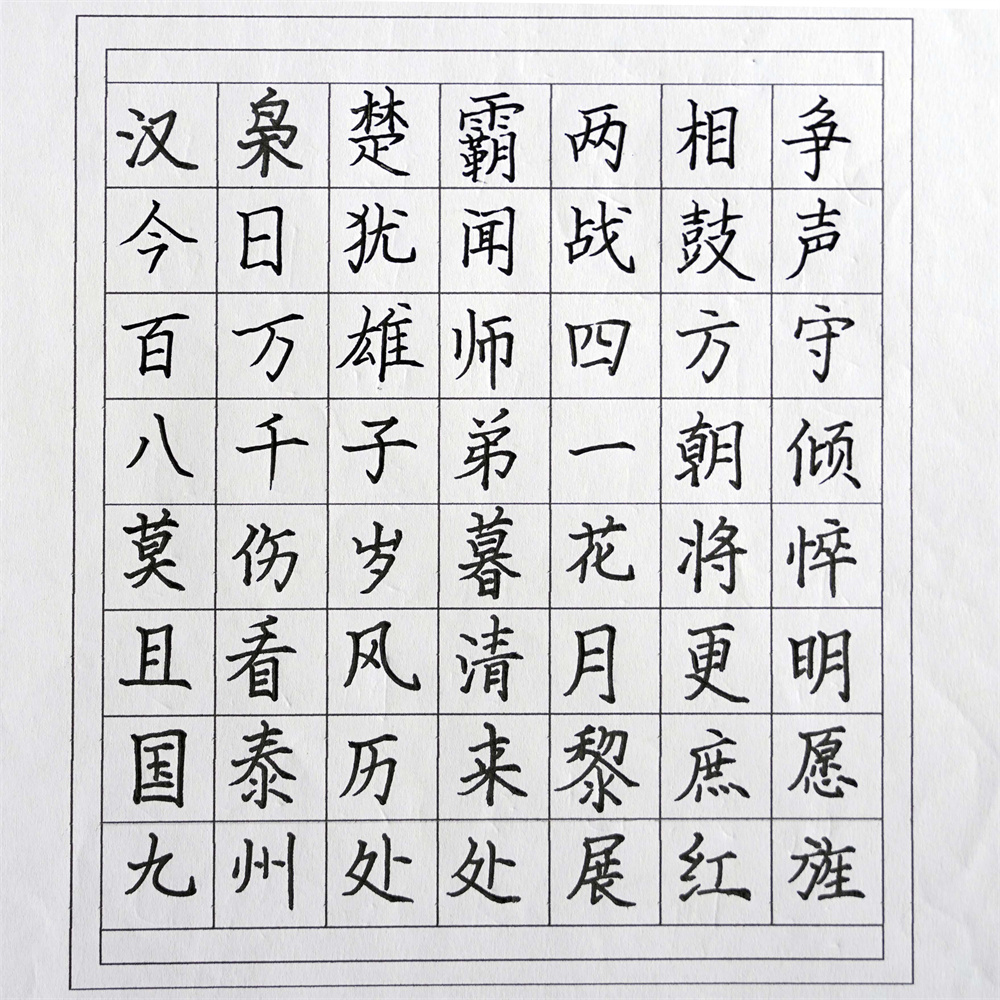 汉枭楚霸两相争
今日犹闻战鼓声
百万雄师四方守
八千子弟一朝倾
莫伤岁暮花将悴
且看风清月更明
国泰历来黎庶愿
九州处处展红旌